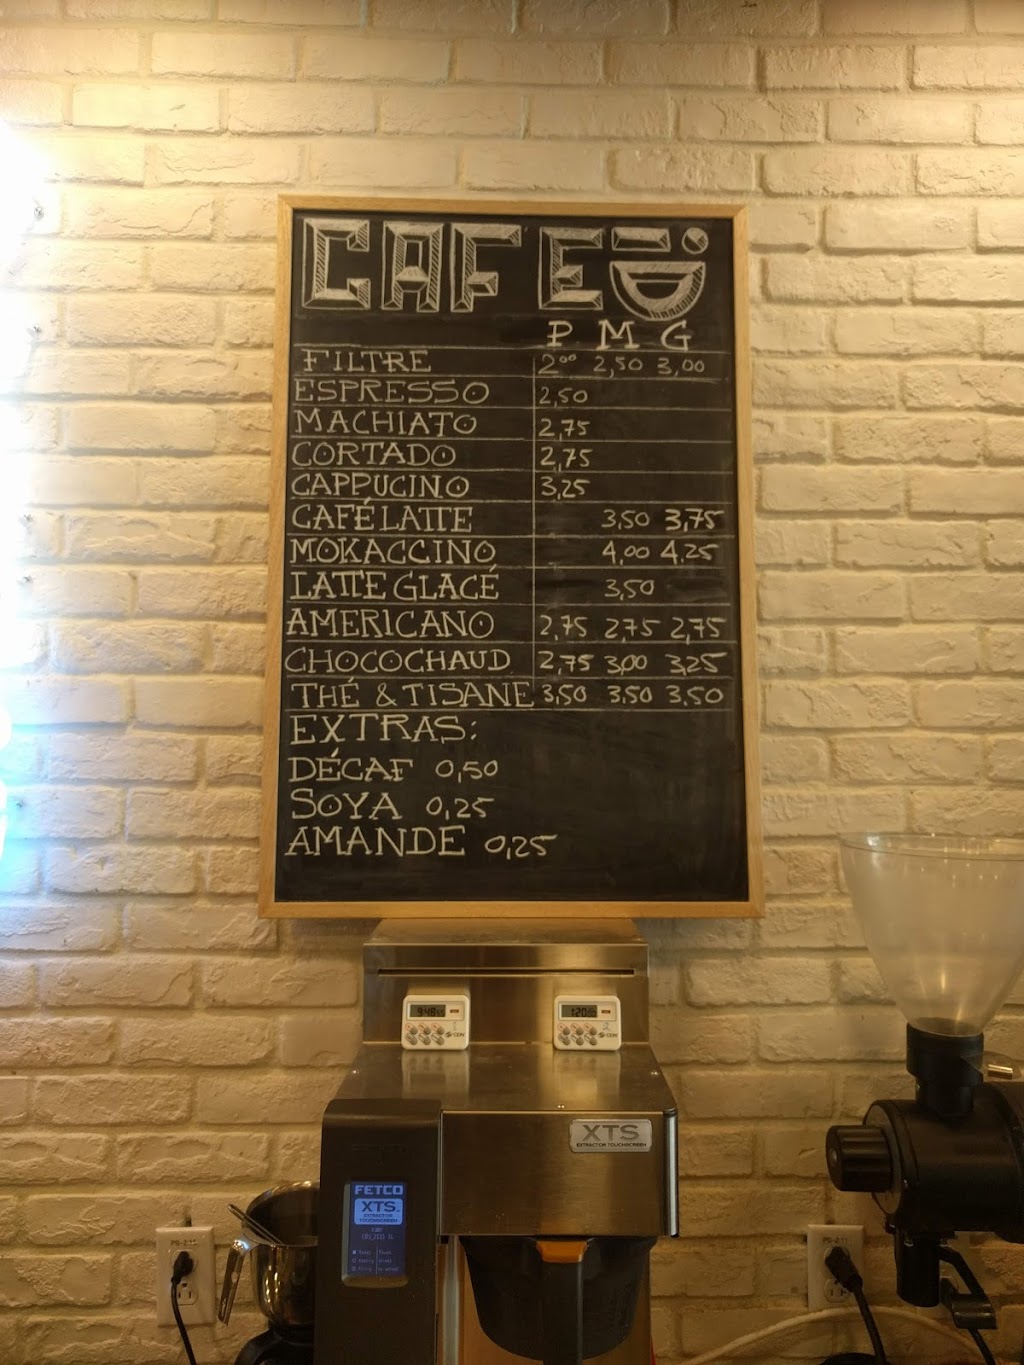 CAFE
P. M G
FILTRE 2⁰⁰ 2,50 3,00
ESPRESSO 2,50
MACHIATO 2,75
CORTADO 2,75
CAPPUCINO 3,25
CAFÉ LATTE 3,50 3,75
MOKACCINO 4,00 4.25
LATTE GLACÉ 3,50
AMERICANO 2,75 2,75 2,75
CHOCOCHAUD 2,75 3,00 3,25
THÉ & TISANE 3,50 3,50 3.50
EXTRAS:
DÉCAF 0,50
SOYA 0,25
AMANDE 0,25
XTS
EXTRACTOR TOUCHSCREEN
FETCO
XTS.
EXTRACTOR
TOUCHSCREEN